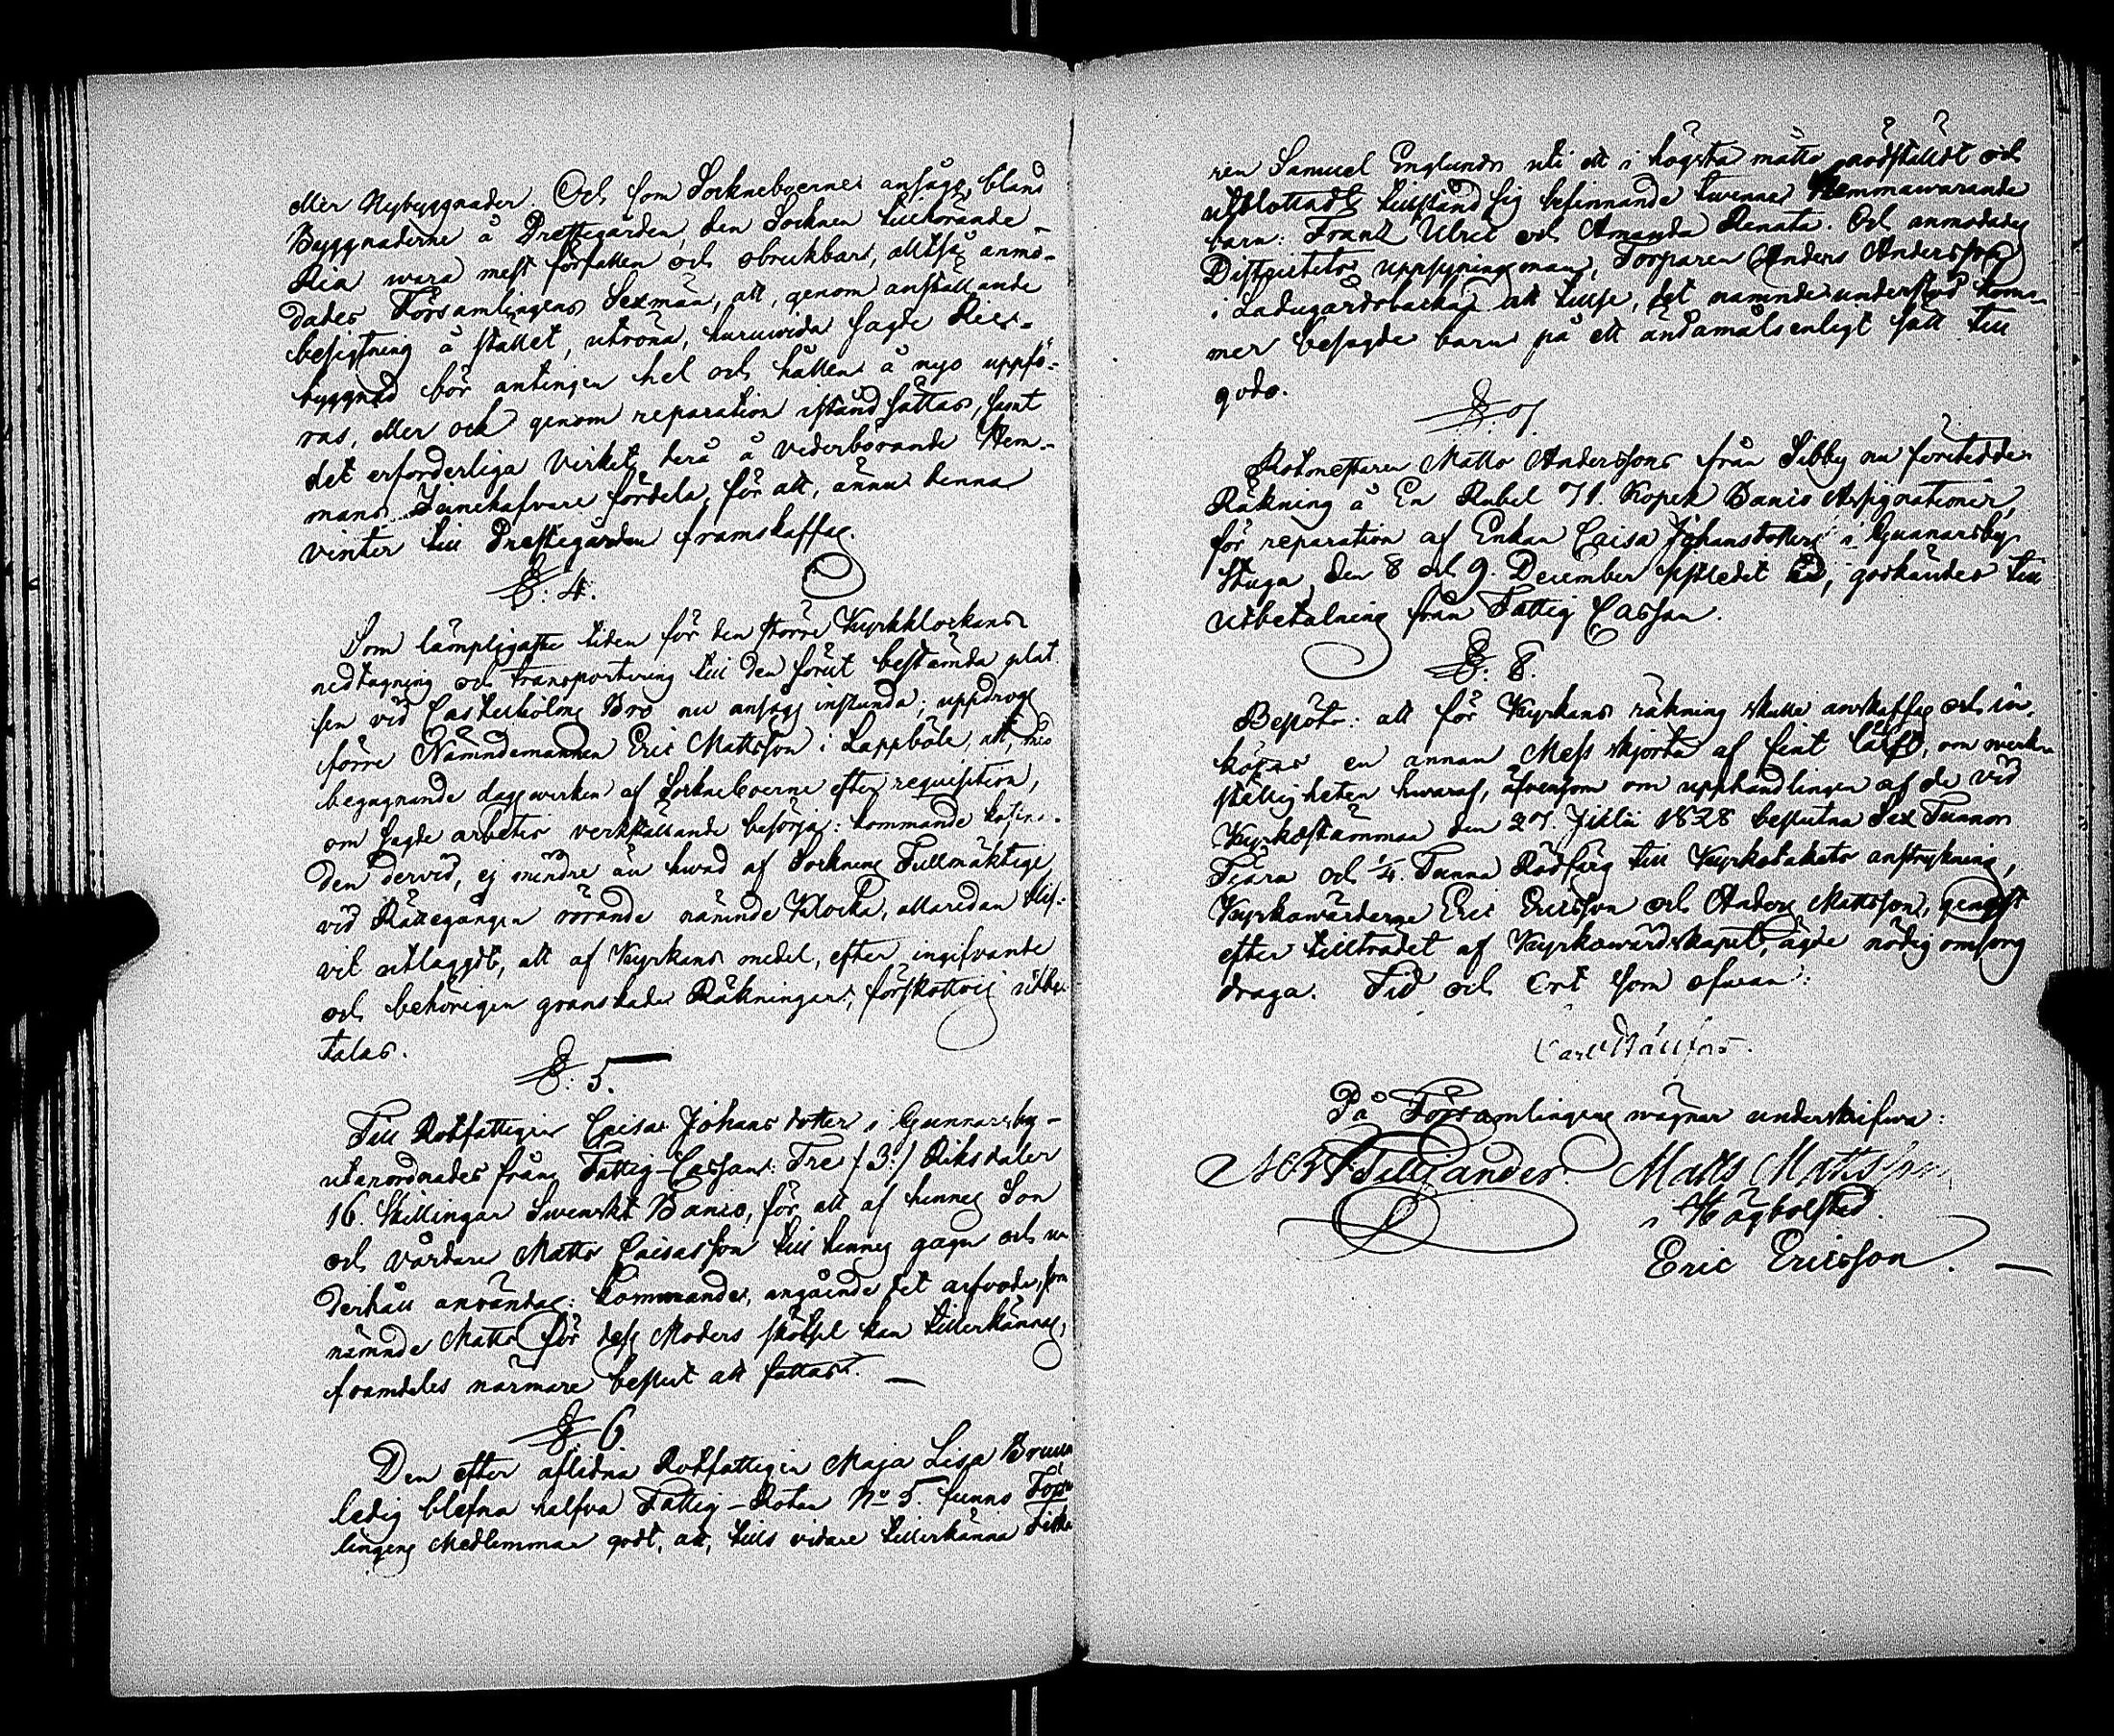 eller Nybyggnader. Och som Sockneboernes ansågs, bland
Byggnaderne å Prestegården, den Socknen tillhörande
Ria wara mest förfallen och obrukbar, alltså anmo-
dades Församlingens Sexmän, att, genom anställande
besigtning å stället, utröna, huruvida sagde Rie-
byggnad bör antingen hel och hållen å nyo uppfö-
ras, eller ock genom reparation istånd sättas, samt
det erforderliga Virket derå å vederbörande Hem-
mans Innehafvare fördela, för att, ännu denna
vinter till Prestegården framskaffas.
§: 4.
Som lämpligaste tiden för den större Kyrkklockans
nedtagning och transportering till den förut bestämda plat
sen vid Castelholms Bro nu ansågs instunda, uppdrogs
förre Nämndemannen Eric Mattsson i Lappböle, att, med
begagnande dagswerken af Sockneboerne efter requisition,
om sagde arbetes verkställande besörja: kommande kostna-
den dervid, ej mindre än hwad af Socknens Fullmäktige
vid Rättegången rörande nämnde Klocka, allaredan blif-
vit utlaggdt, att af Kyrkans medel, efter ingifvande
och behörigen granskade Räkningar, förskottvis utbe-
talas.
§: 5.
Till Rotfattigen Caisa Johansdotter i Gunnarsby-
utanordnades från Fattig-Cassan: Tre /3:/ Riksdaler
16. Skillingar Swenskt Banco, för att af hennes Son
och vårdare Matts Caisasson till hennes gagn och un
derhåll användas: kommande, angående det arfvode, som
nämnde Matts för dess Moders skötsel kan tillerkännas,
framdeles närmare beslut att fattas. —
§. 6.
Den efter aflidna Rotfattigen Maja Lisa Bruun
ledig blefna halfva Fattig-Rotan No 5. funno Försam
lingens Medlemmar godt, att, tills vidare tillerkänna Fiska
ren Samuel Englunds uti ett i högsta måtto nödställdt och
utblottadt tillstånd sig befinnande twenne Hemmawarande
barn: Franz Ulric och Amanda Renata. Och anmodades
Districtets uppsyningsman, Torparen Anders Andersson
i Ladugårdsbacka att tillse, det nämnde understöd kom-
mer besagde barn på ett ändamålsenligt sätt till
godo.
§. 7.
Rotmästaren Matts Anderssons från Sibby nu företedde
Räkning å En Rubel 71. Kopek Banco Assignationer,
för reparation af Enkan Caisa Johansdotters i Gunnarsby
Stuga, den 8 och 9. December sistledit år, godkändes till
utbetalning från Fattig Cassan.
§. 8.
Beslöts: att för Kyrkans räkning skulle anskaffas och in-
köpas en annan Mess skjorta af fint lärft, om werk-
ställigheten hwaraf, äfvensom om upphandlingen af de vid
Kyrkostämman den 27. Julii 1828 beslutna Sex Tunnor
Tjära och 1/4. Tunna Rödfärg till Kyrkotakets anstrykning,
Kyrkowärderne Eric Ericsson och Anders Mattsson, genast
efter tillträdet af Kyrkowärdskapet, ägde nödig omsorg
draga. Tid och Ort som ofwan:
Carl
På Församlingens wägnar underskrifwa:
Tilliander. Matts Mattsson
i Högbolsted.
Eric Ericsson. —